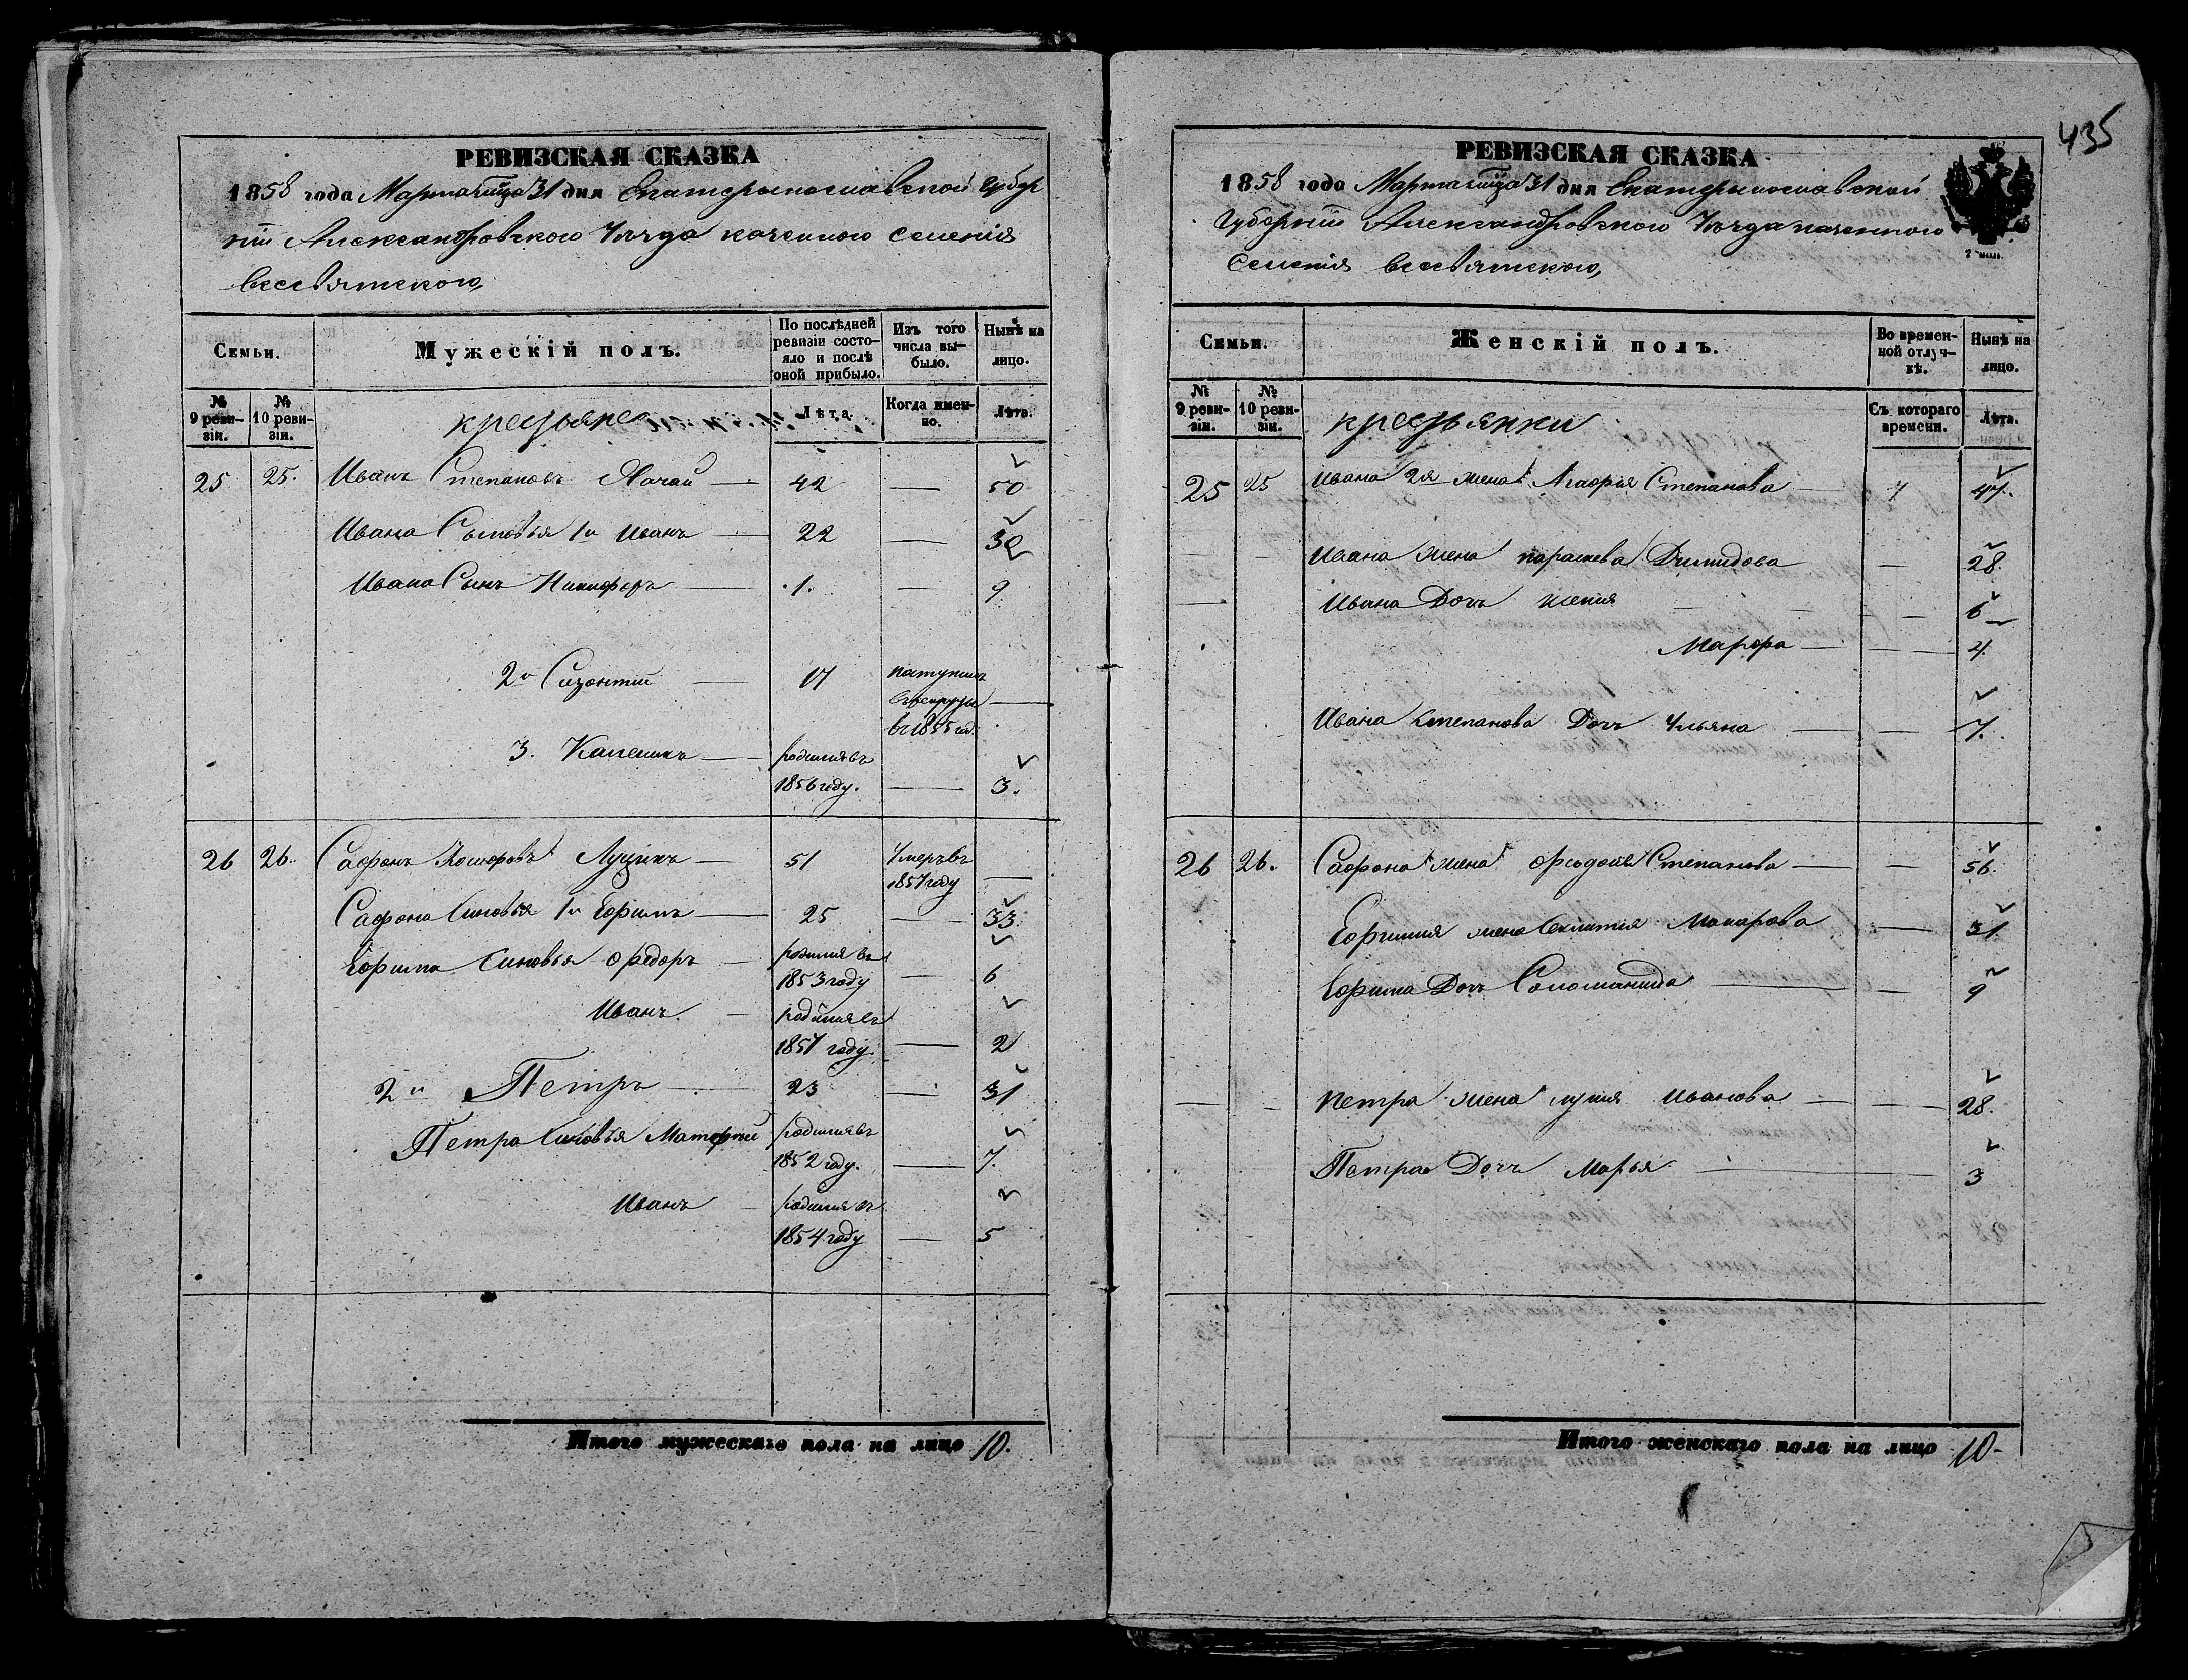 РЕВИЗСКАЯ СКАЗКА
1858 года Марта мѣсяца 31 дня Екатеринославской Губер
ніи Александровского Уѣзда казенного Селенія
Всесвятского,
Семьи.
Мужескій полъ.
По послѣдней ревизіи состояло и послѣ оной прибыло.
Изъ того числа выбыло.
Нынѣ на лицо.
№ 9 ревизіи.
№ 10 ревизіи.
крестьяне
Лѣта.
Когда именно.
Лѣта.
25 25. Иванъ Степановъ 42 — 50
Ивана Сыновья 1й Иванъ — 22 — 30
Ивана Сынъ Никифоръ — 1. — 9
2й Созонтий — 17
в рекруты —
в 1855 год.
3. Калиникъ — родился въ
1856 году. — 3.
26 26. Сафонъ Луценк — 51 Умеръ въ
1857 году —
Сафона Сыновья 1й Ефимъ — 25 — 33.
Ефима Сыновья Федоръ — родился въ
1853 году — 6
Иванъ. — родился въ
1857 году. — 2
2й Петръ — 23 — 31
Петра Сыновья Матфей родился въ
1852 году. — 7.
Иванъ — родился въ
1854 году — 5
Итого мужескаго пола на лицо 10.
435
РЕВИЗСКАЯ СКАЗКА
1858 года Марта мѣсяца 31 дня Екатеринославской
Губерніи Александровского Уѣзда казенного
Селенія Всесвятского,
Семьи.
Женскій полъ.
Во временной отлучкѣ.
Нынѣ на лицо.
№ 9 ревизіи.
№ 10 ревизіи.
крестьянки
Съ котораго времени.
Лѣта.
25 25 Ивана 2я жена Агафья Степанова — 47.
Ивана жена Параскева Демидова — 28.
Ивана Дочь Ксения — 6
Марфа — 4.
Ивана Степанова Дочь Ульяна — 7.
26 26. Сафона жена Федосия Степанова — 56.
Ефимия жена Макарова — 31
Ефима Дочь Соломанида — 9
Петра жена Иванова — 28.
Петра Дочь Марья — 3
Итого женскаго пола на лицо 10-